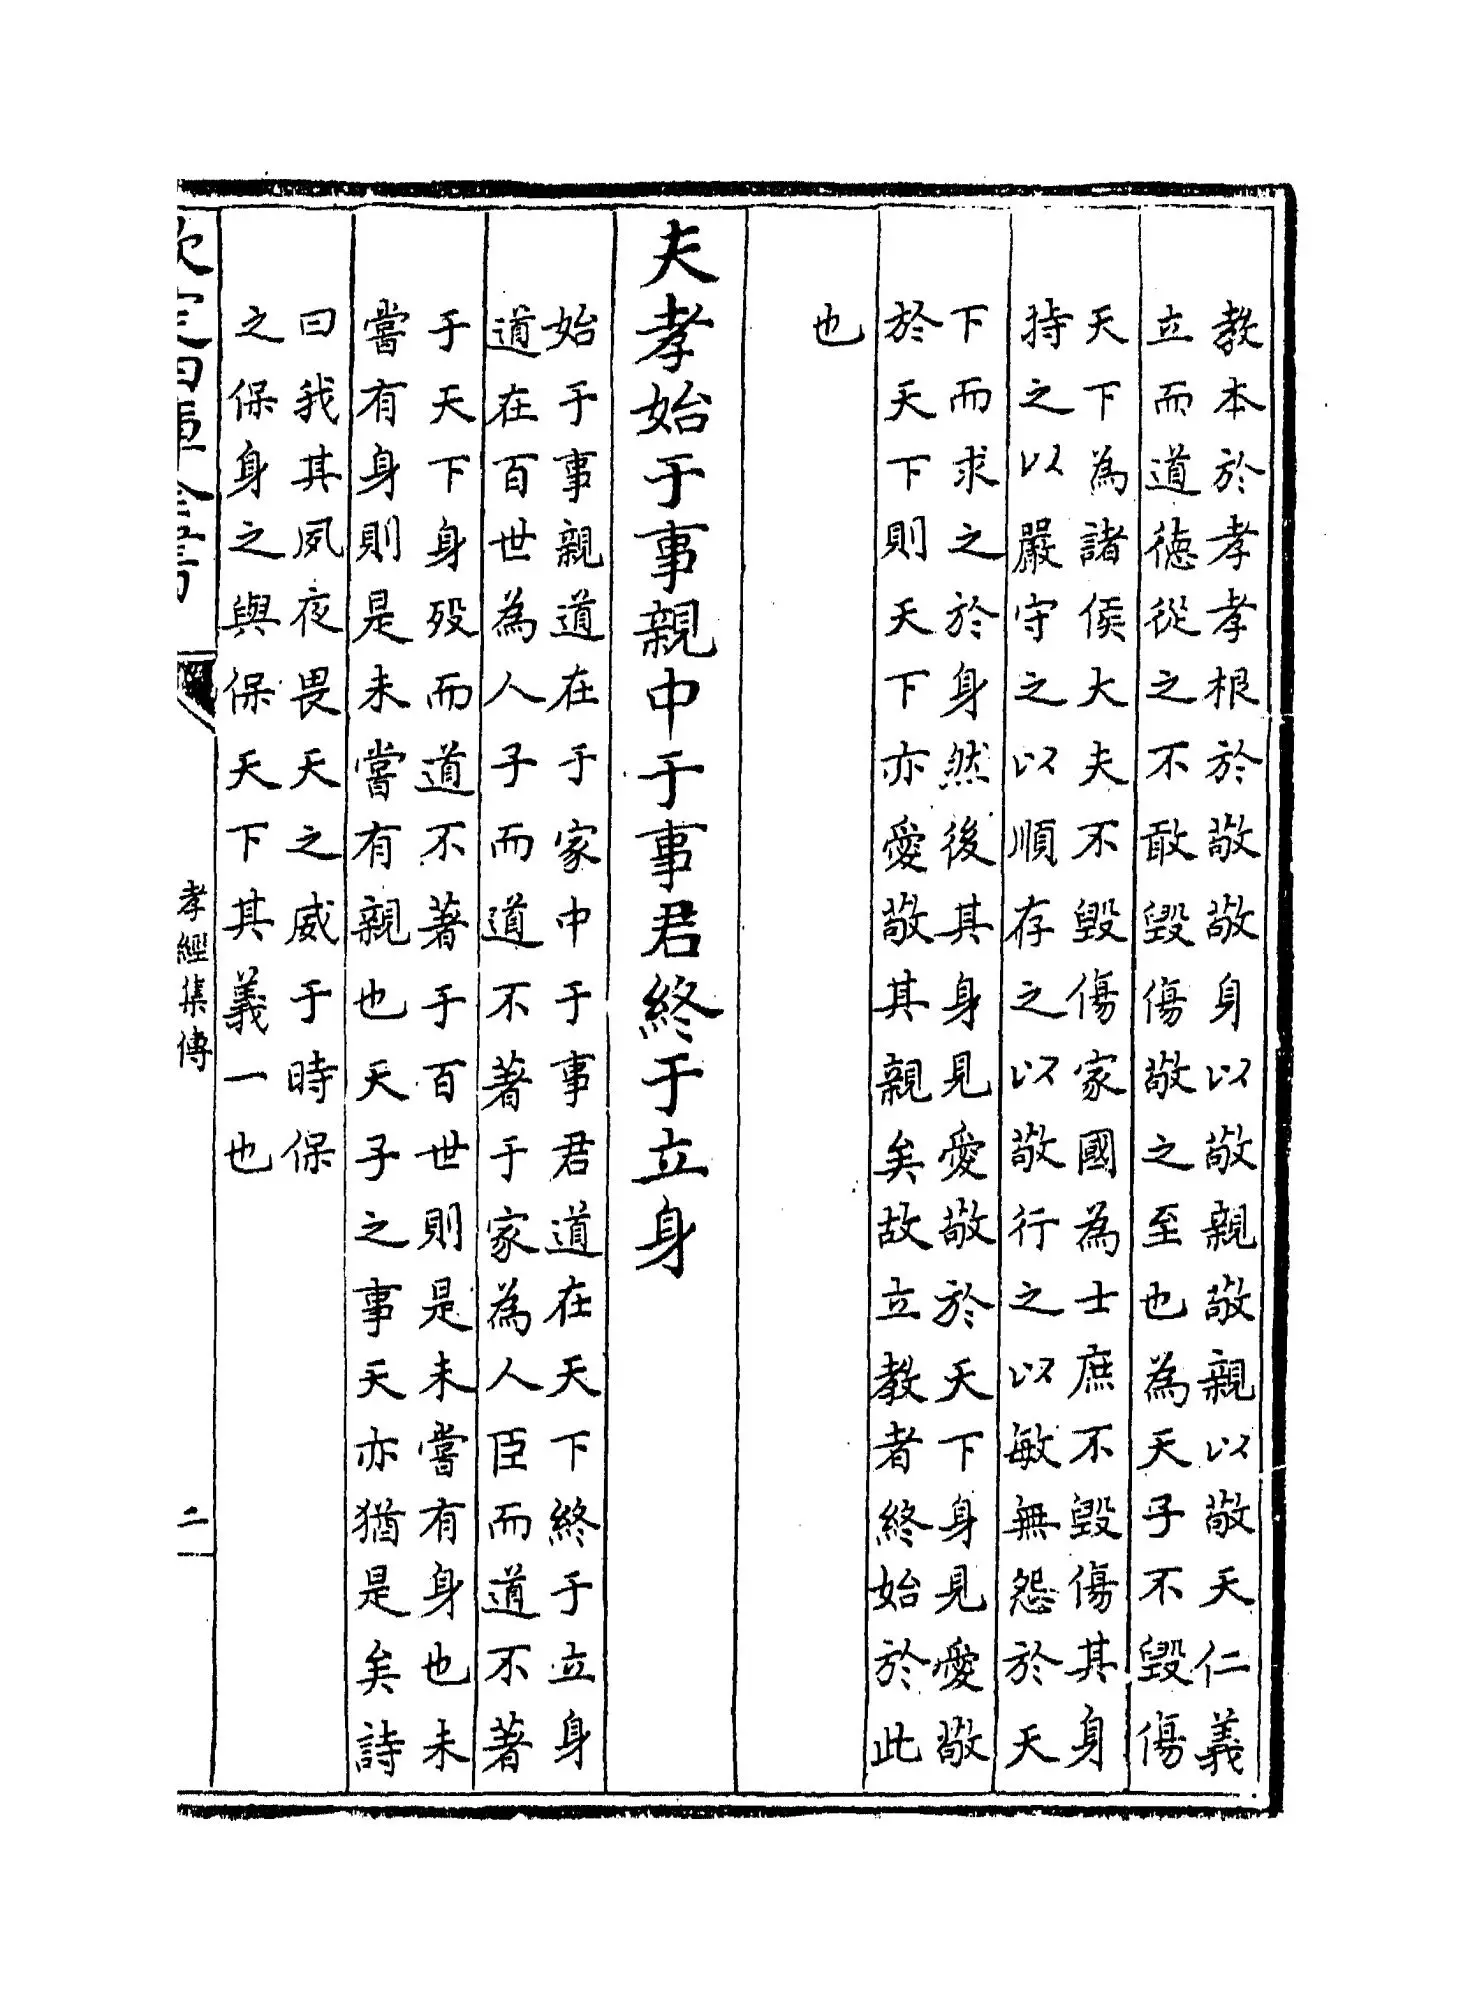 教本於孝孝根於敬敬身以敬親敬親以敬天仁義
立而道德從之不敢毀傷敬之至也為天子不毀傷
天下為諸侯大夫不毀傷家國為士庶不毀傷其身
持之以嚴守之以順存之以敬行之以敏無怨於天
下而求之於身然後其身見愛敬於天下身見愛敬
於天下則天下亦愛敬其親矣故立教者終始於此
也
夫孝始于事親中于事君終于立身
始于事親道在于家中于事君道在天下終于立身
道在百世為人子而道不著于家為人臣而道不著
于天下身歿而道不著于百世則是未嘗有身也未
嘗有身則是未嘗有親也天子之事天亦猶是矣詩
曰我其夙夜畏天之威于時保
之保身之與保天下其義一也
欽定四庫全書
孝經集傳
二